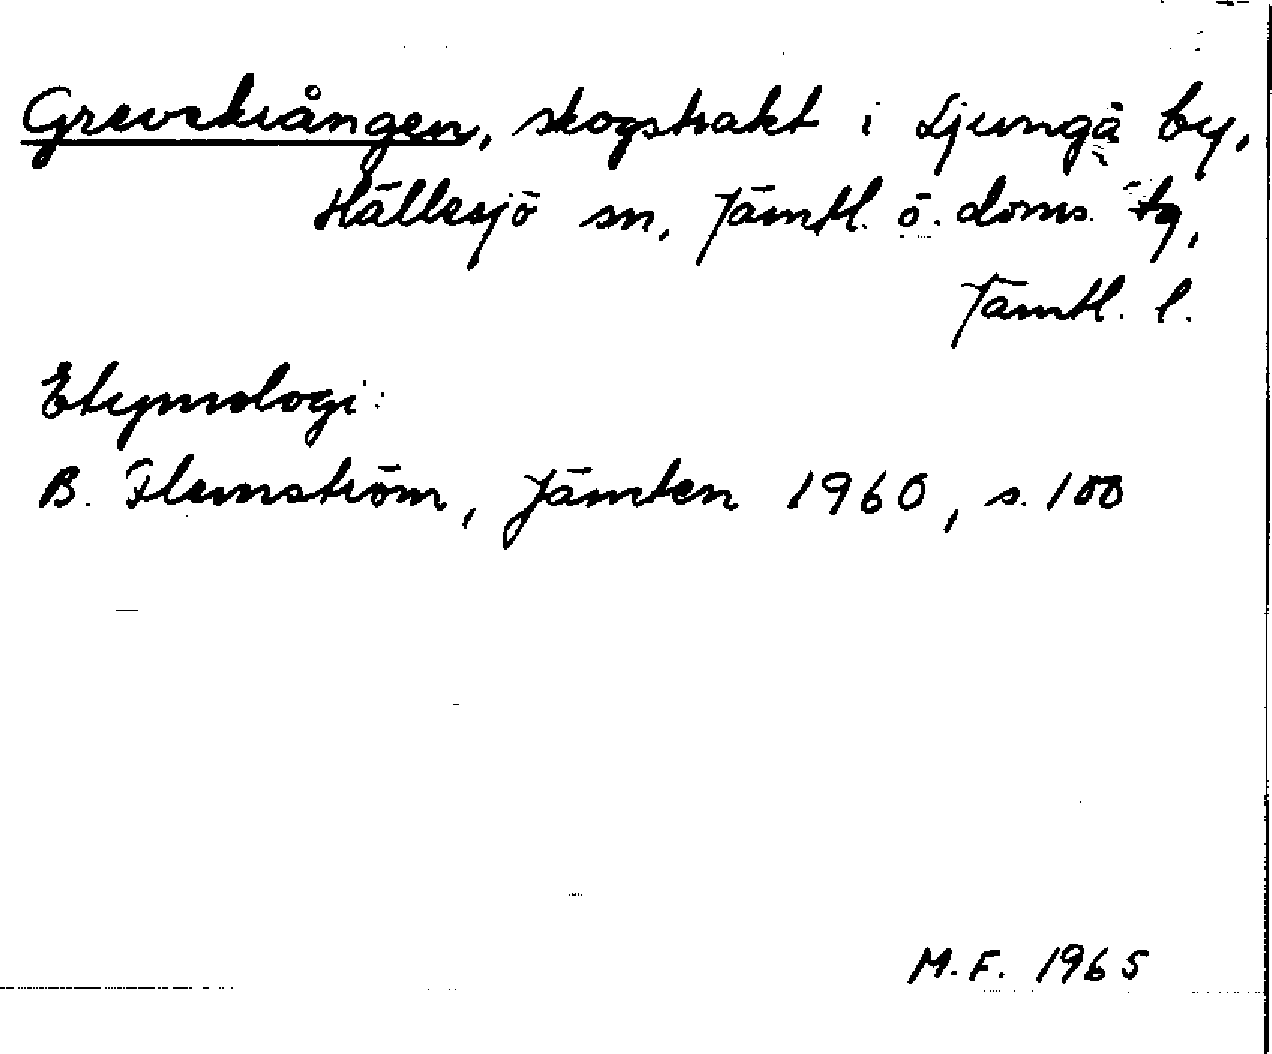 Grevekvången, skogstrakt i Ljungå by,
Hällesjö sn, Jämtl. ö. doms. tg,
Jämtl. l.
Etymologi:
B. Flemström, Jämten 1960, s. 100
M.F. 1965